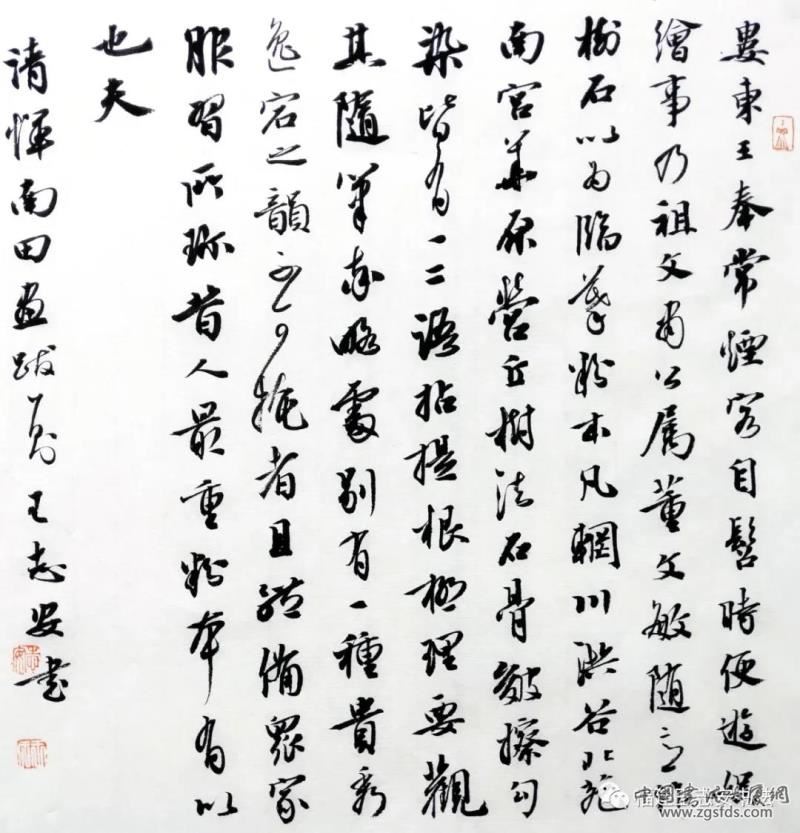 婁東王奉常煙客自髫時便遊娛
繪事乃祖文肅公属董文敏隨意
樹石以為臨摹粉本凡輞川洪谷北苑
南宮華原營丘樹法石骨皴擦勾
染皆有一二語拈提根極理要觀
其隨筆率略處別有一種貴秀
逸宕之韻不可掩者且體備眾家
服習所珍昔人最重粉本有以
也夫
清惲南田畫跋一則王志安書
www.zgsfds.com